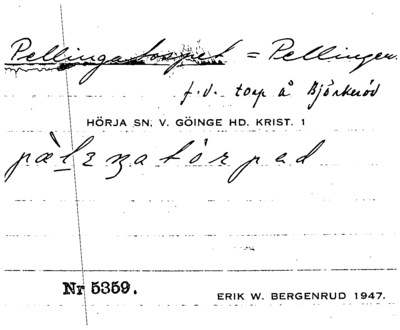 Pellingatorpet = Pellingen.
f.d. torp å Björkeröd
HÖRJA SN. V. GÖINGE HD. KRIST. 1
pæ̀lɛŋatórped
Nr 5359.
ERIK W. BERGENRUD 1947.